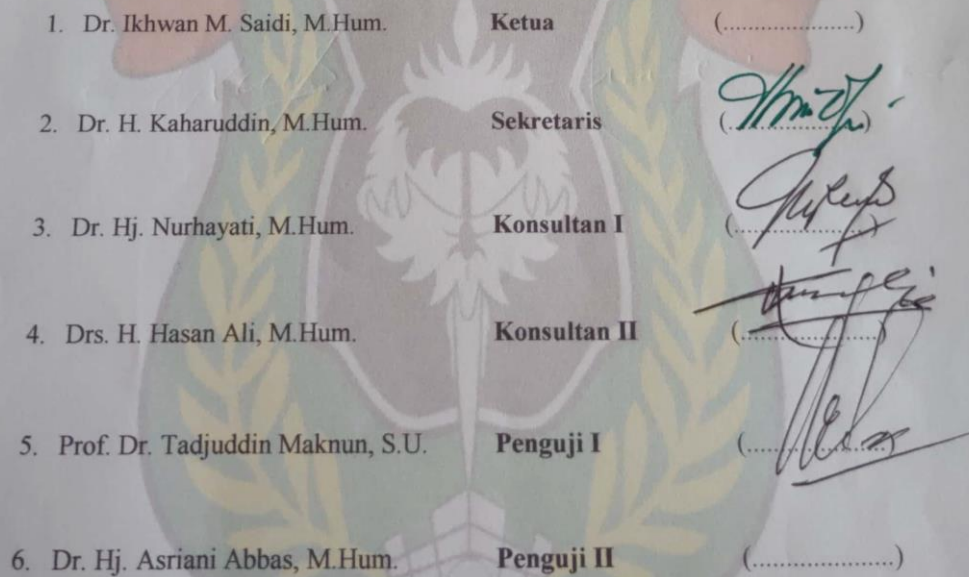 1. Dr. Ikhwan M. Saidi, M.Hum. Ketua (.....................)
2. Dr. H. Kaharuddin, M.Hum. Sekretaris (.....................)
3. Dr. Hj. Nurhayati, M.Hum. Konsultan I (.....................)
4. Drs. H. Hasan Ali, M.Hum. Konsultan II (.....................)
5. Prof. Dr. Tadjuddin Maknun, S.U. Penguji I (.....................)
6. Dr. Hj. Asriani Abbas, M.Hum. Penguji II (.....................)